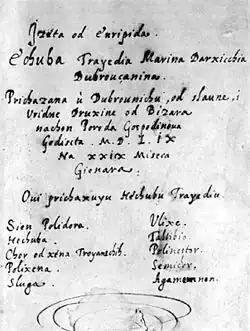 Izeta od Euripida.
Echuba Trayedia Marina Darxicchia
Dubroucanina.
Prichazana ù Dubrounichu, od slaune, i
Vridne Druxine od Bizara
nachon Poroda Gospodinoua
Godiscta. M. D. L IX
Na XXIX Miseca
Gienara.
Oui prichaxuyu Hechubu Trayediu.
Sien Polidora.
Hechuba.
Chor od xena Troyanschih.
Polixena.
Sluga.
Vlixe.
Taltibio.
Polinestor.
Semichor.
Agamemnon.